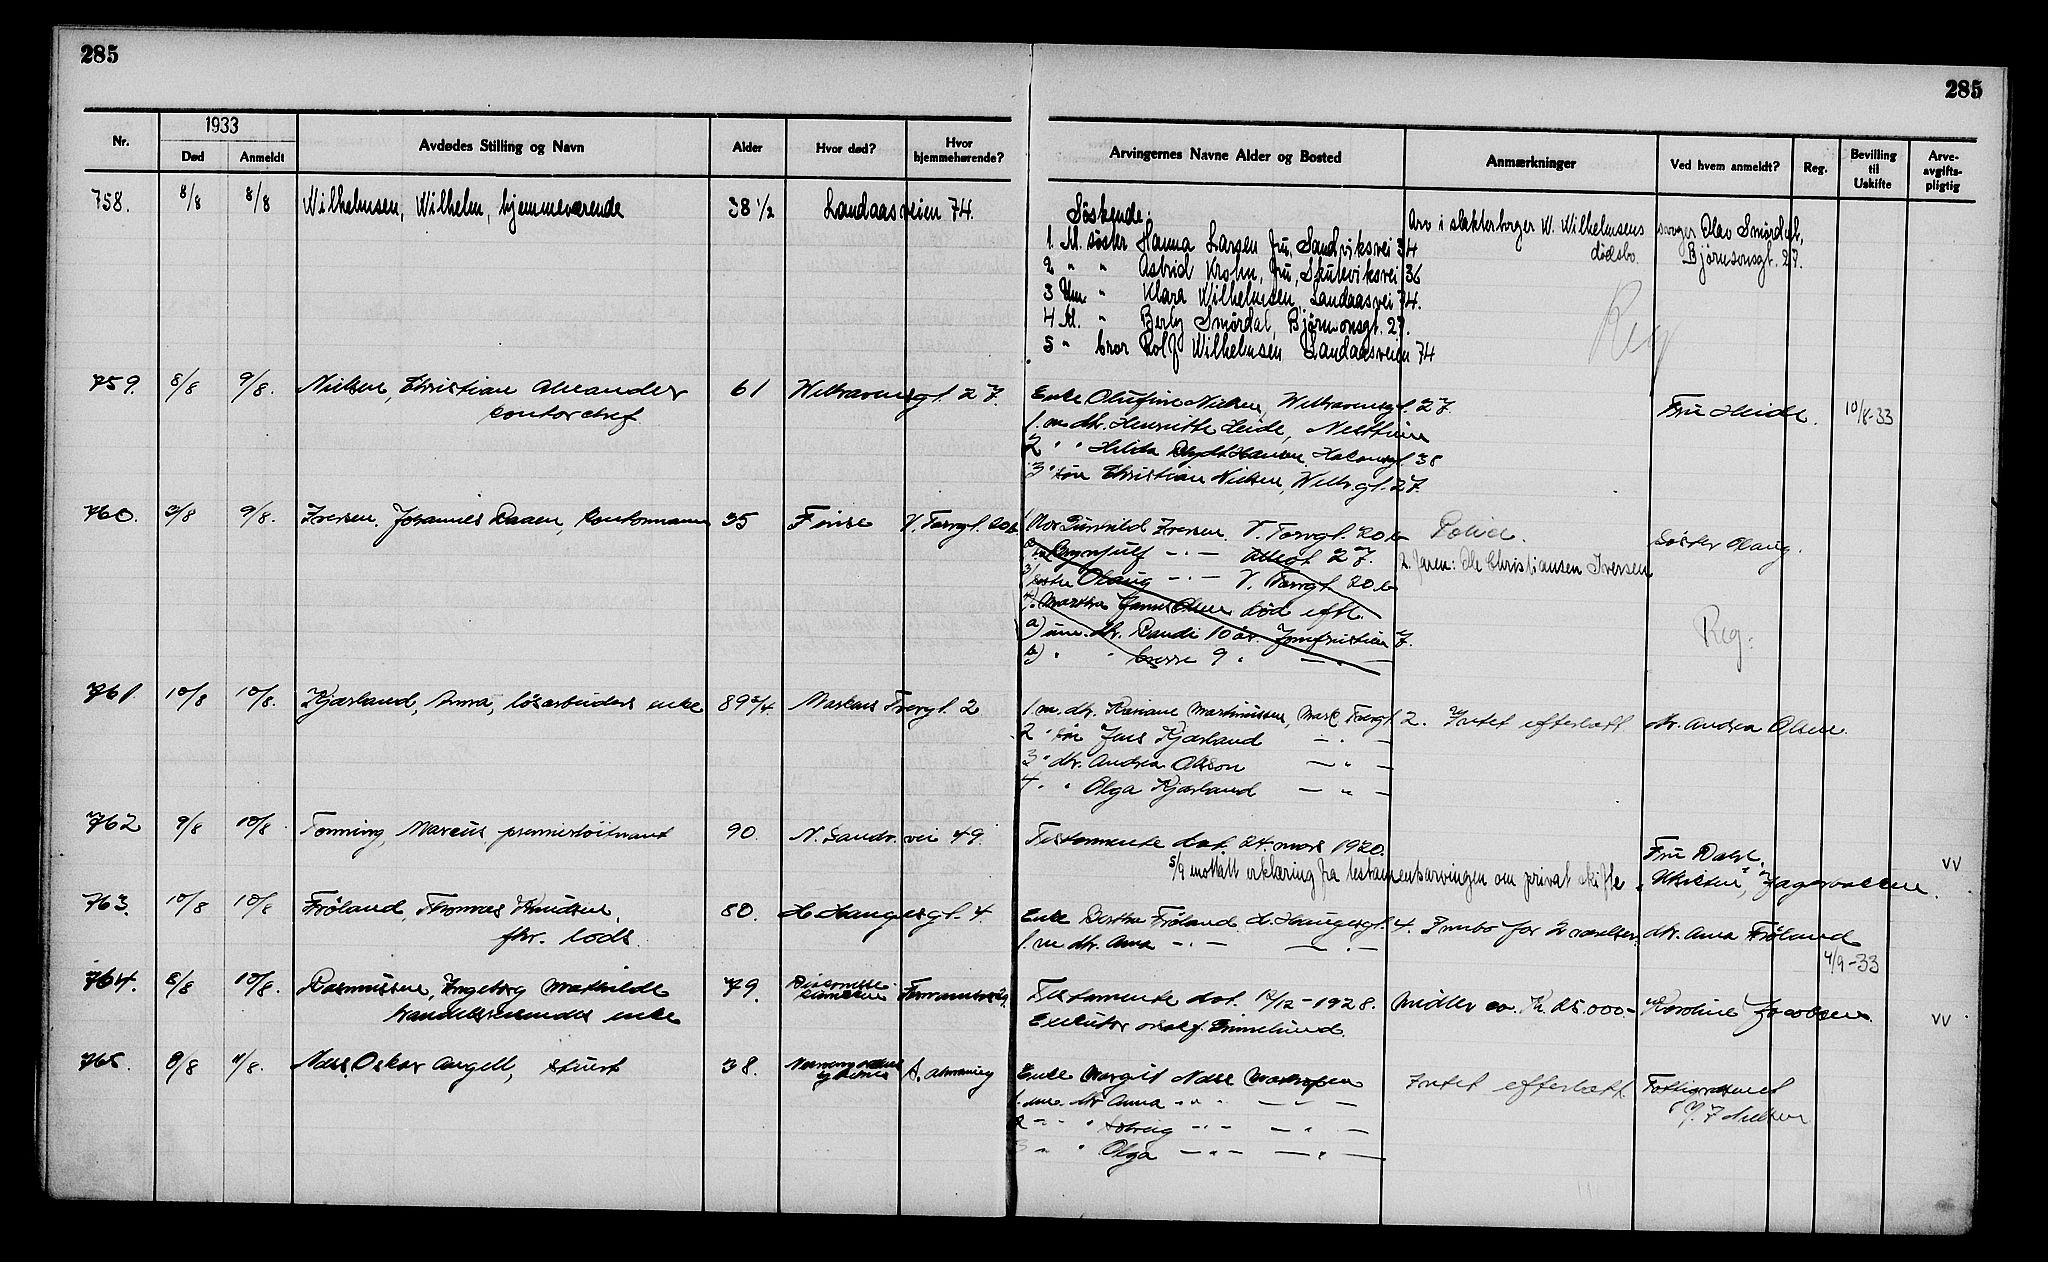 285
285
Nr.
1933
Død
Anmeldt
Avdødes Stilling og Navn
Alder
Hvor død?
Hvor hjemmehørende?
Arvingernes Navne Alder og Bosted
Anmærkninger
Ved hvem anmeldt?
Reg.
Bevilling til Uskifte
Arve-avgifts-pligtig
758. 8/8 8/8 Wilhelmsen, Wilhelm, hjemmeværende 38 1/2 Landaasveien 74.
Søskende:
1. M. søster Hanna Larsen fru, Sandviksvei 34
2 " " Astrid Krohn, fru, Skuteviksvei 36
3 Um " Klara Wilhelmsen, Landaasvei 74.
4 M. " Smørdal, Bjørnsonsgt. 27.
5 " bror Rolf Wilhelmsen Landaasveien 74
Arv i W. Wilhelmsens dødsbo.
svoger Olav Smørdal, Bjørnsonsgt. 27.
Reg
759. 8/8 9/8. Nielsen Christian Alexander
kontorchef
61 Welhavensgt. 27.
Enke Olufine Nielsen, Welhavensgt. 27.
1. m. dtr. Henriette Heide, Nesttun
2 " " Hilda Hansen Hakonsgt. 38
3 " søn Christian Nielsen, Welh.gt. 27.
Fru Heide. 10/8-33
760. 3/8 9/8. Iversen, Johannes Raaen, kontormann 35 Finse V. Torvgt. 20b
1 Mor Gunhild Iversen V. Torvgt. 20b
2 Brynjulf - " - 27.
3 søster Olaug - " - V. Torvgt. 20b
4. Martha død eftl.
a) um. dtr. Randi 10 år.
b) " " 9 " - " -
Politi.
2. Faren: Ole Christiansen Iversen
Søster Olaug.
Reg.
761. 10/8 10/8. Kjærland, Anna, løsarbeiders enke 89 3/4. Markus Torvgt. 2
1. m. dtr. Martinussen, Mark. Torvgt. 2. Intet efterlatt dtr. Andrea Olsen.
2 " søn Jens Kjærland - " -
3 " dtr. Andrea Olsen - " -
4 " " Olga Kjærland - " -
762 9/8 10/8. Tonning, Marcus, premierløitnant 90. N. Sandv. vei 49.
Testamente dat. 24. mars 1920.
5/9 mottatt erklæring fra testamentsarvingen om privat skifte
Fru Dahl. vv
763. 10/8 10/8 Frøland, Thomas Knudsen,
fhv. lods.
80. H. Haugesgt. 4.
Enke Bertha Frøland H. Haugesgt. 4. Innbo for 2 værelser. dtr. Anna Frøland
1. m dtr. Anna - " - - " -
4/9-33
764. 8/8 10/8. Rasmussen, Ingeborg Mathilde
handelsreisendes enke
79.
Testamente dat. 12/12-1928. Midler ca. Kr. 25.000.- Karoline Jacobsen. vv
Executor
765. 9/8 11/8. Næss, Oskar Angell, stuert 38.
Enke Margit Næss
1. um. dtr. Anna - " - - " -
2 " " Solveig - " - - " -
3 " " Olga - " - - " -
Intet efterlatt.
Fattigvæsenet